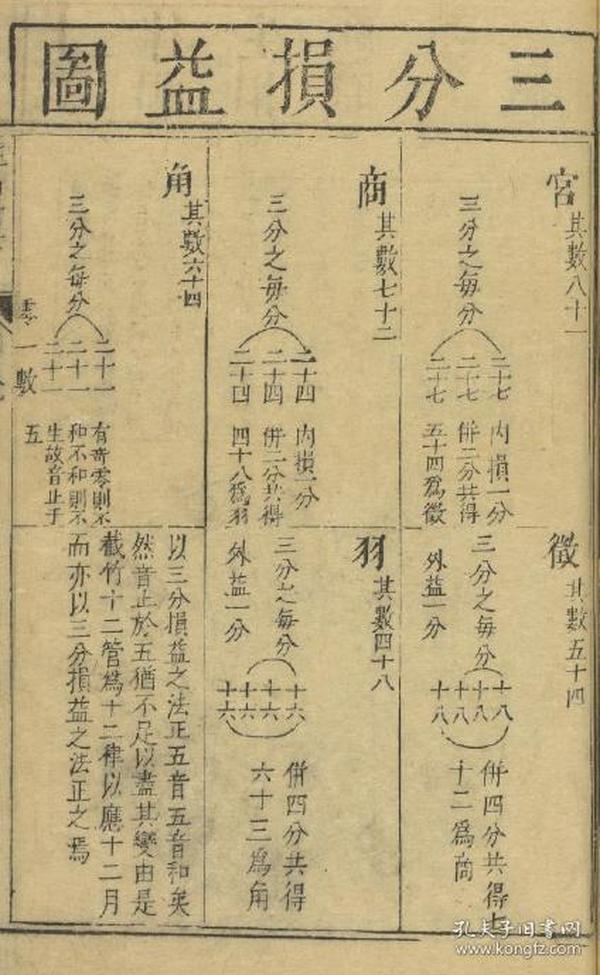 三分損益圖
宮
其數八十一
三分之每分
二十七
二十七
二十七
內損一分
併二分共得
五十四爲徵
徵
其數五十四
三分之每分
外益一分
十八
十八
十八
十八
併四分共得七
十二爲商
商
其數七十二
三分之每分
二十四
二十四
二十四
內損一分
併二分共得
四十八爲羽
羽
其數四十八
三分之每分
外益一分
十六
十六
十六
十六
併四分共得
六十三爲角
角
其數六十四
三分之每分
二十一
二十一
二十一
零一數
有奇零則不
和不和則不
生故音止于
五
以三分損益之法正五音五音和矣
然音止於五猶不足以盡其變由是
截竹十二管爲十二律以應十二月
而亦以三分損益之法正之焉
孔夫子旧书网
www.kongfz.com